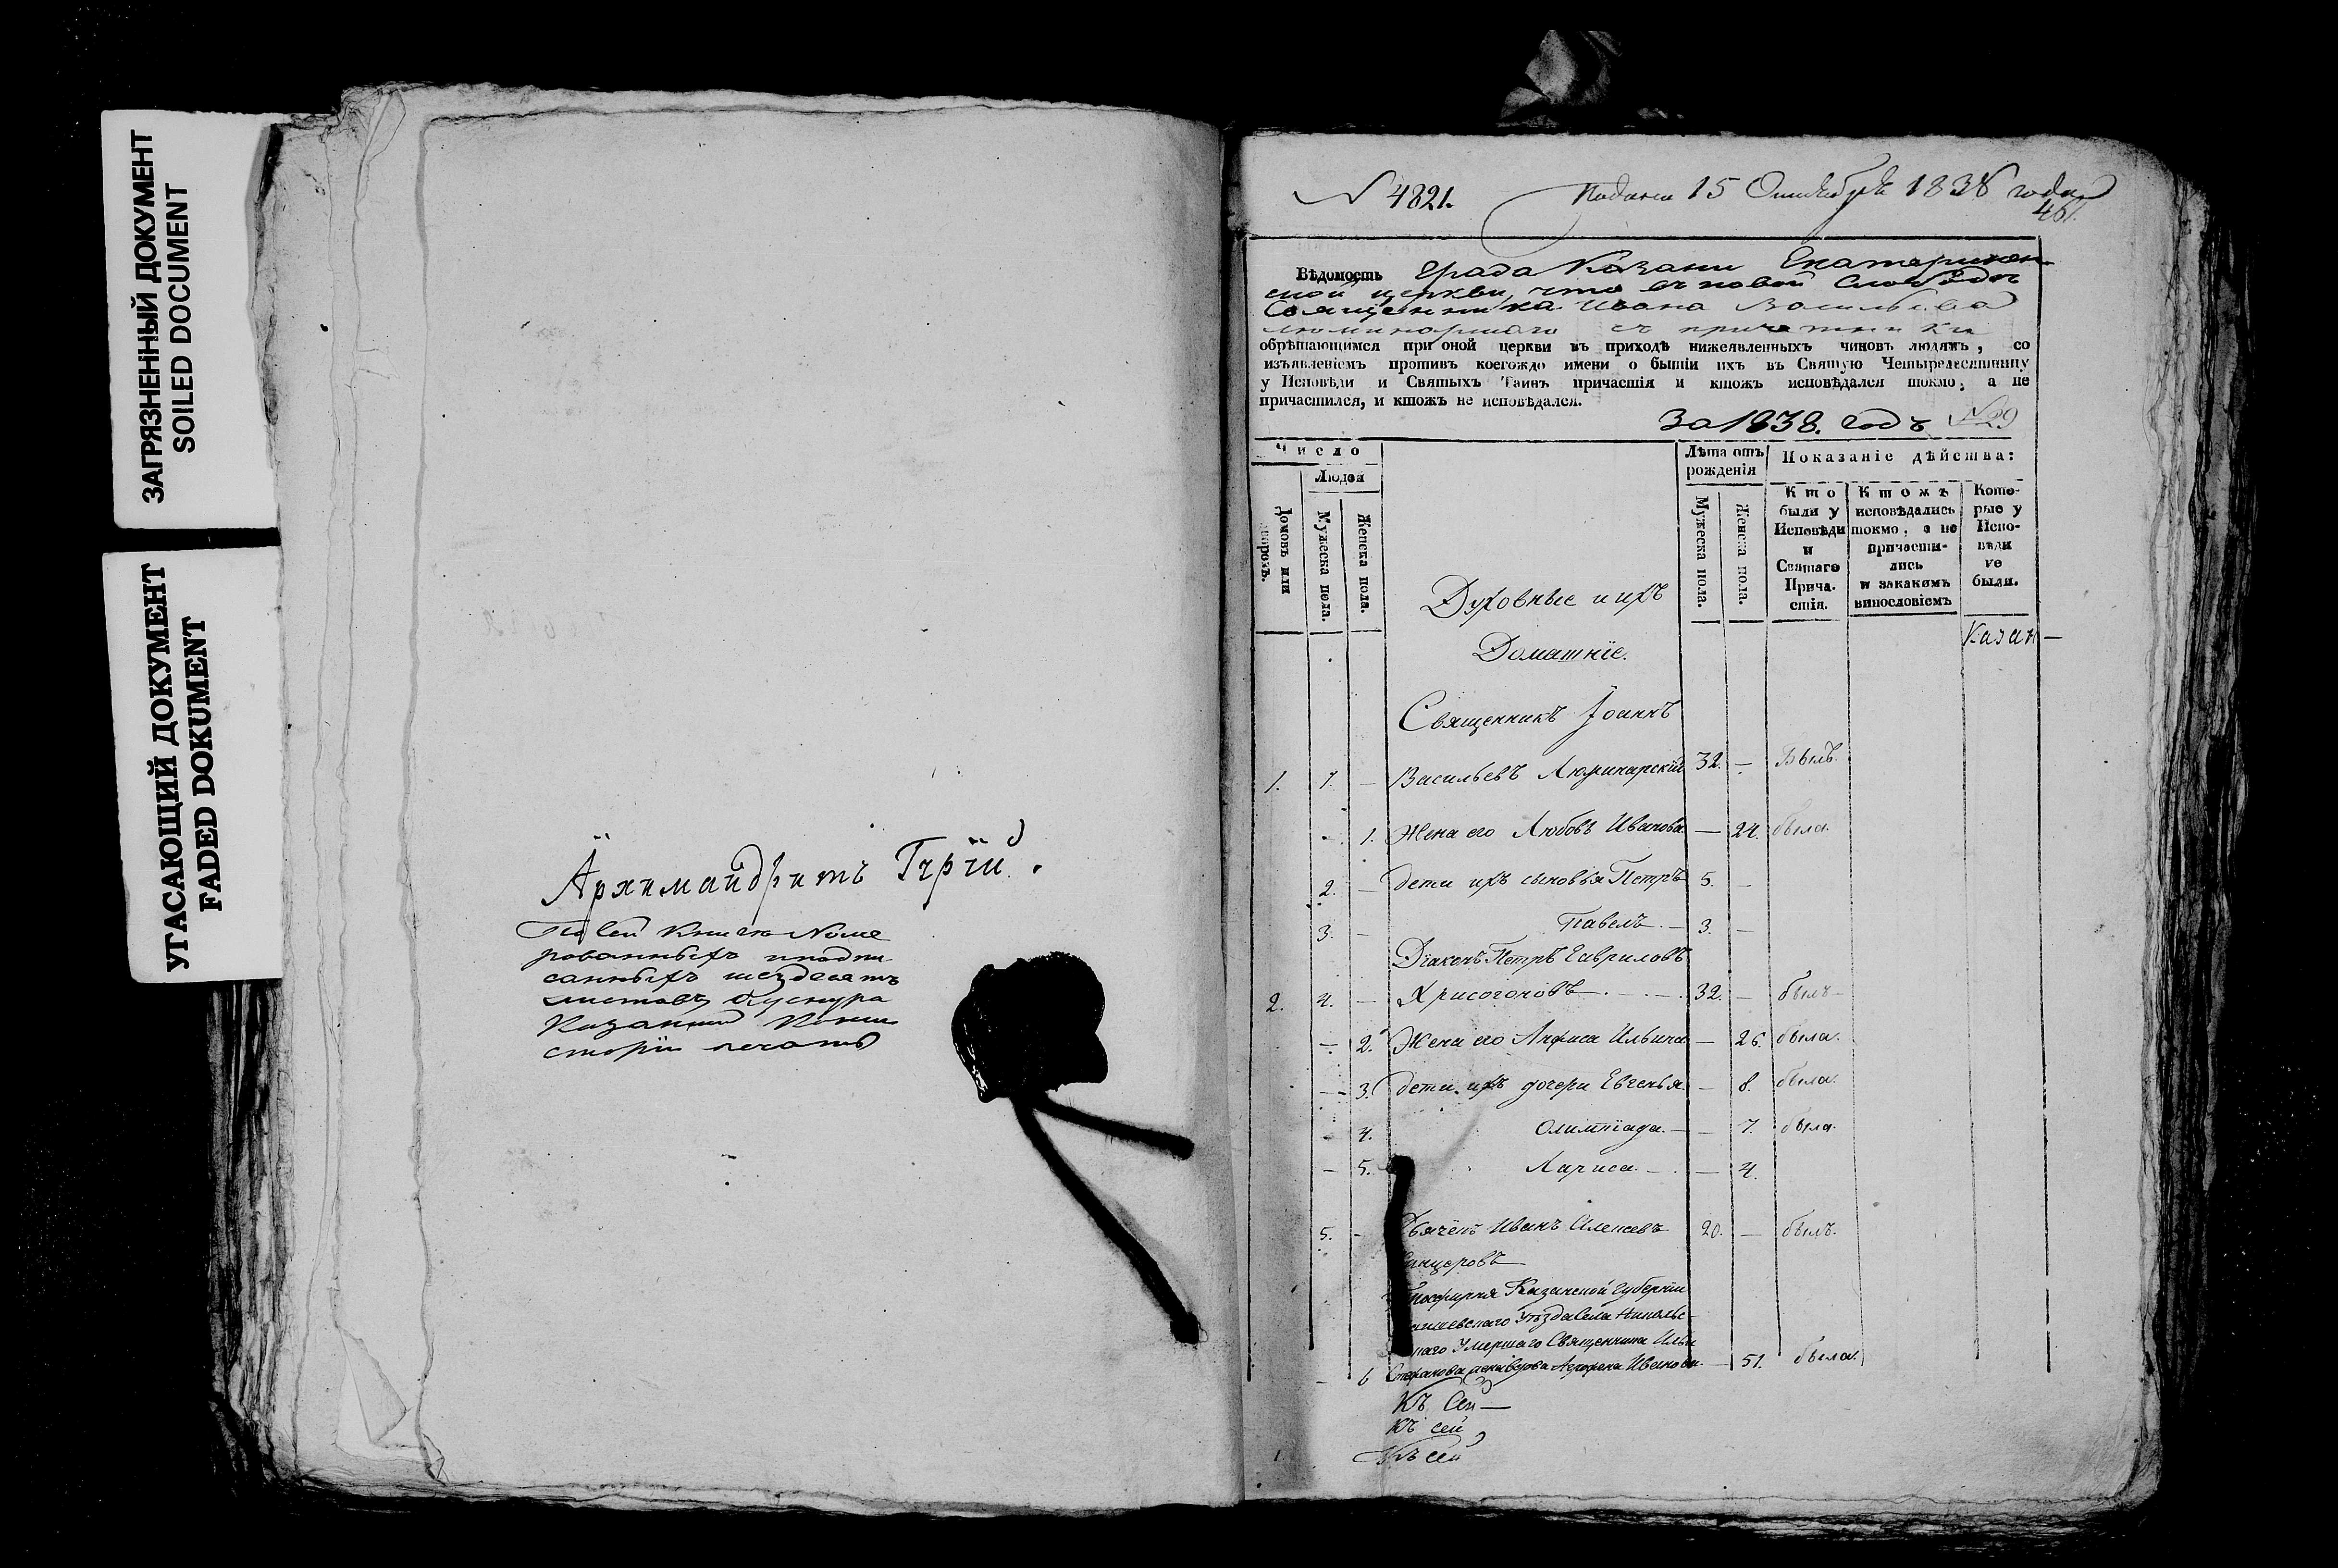 ЗАГРЯЗНЕННЫЙ ДОКУМЕНТ
SOILED DOCUMENT
УГАСАЮЩИЙ ДОКУМЕНТ
FADED DOKUMENT
Архимандритъ Гурій.
Въ сей книгѣ номе
рованныхъ и подпи
санныхъ шездесятъ
листовъ
Казанской Конси
сторіи печать
N 4821. Подана 15 Октября 1838 года
461.
Вѣдомость Града Казани Екатеринин
ской церкви, что въ новой Слободѣ
Священника Ивана Васильева
Люминарскаго съ причетники
обрѣтающимся при оной церкви въ приходѣ нижеявленныхъ чиновъ людямъ, со
изъявленіемъ противъ коегождо имени о бытіи ихъ въ Святую Четыредесятницу
у Исповѣди и Святыхъ Таинъ причастія и ктожъ исповѣдался токмо, а не
причастился, и ктожъ не исповѣдался.
За 1838. годъ N29
Число
Людей
Домовъ или дворовъ.
Мужеска пола.
Женска пола.
Духовные и ихъ
Домашніе.
Лѣта отъ рожденія
Мужеска пола.
Женска пола.
Показаніе дѣйства:
Кто были у Исповѣди и Святаго Прича-стія.
Ктожъ исповѣдались токмо, а не причасти-лись и закакимъ винословіемъ
Кото-рые у Испо-вѣди не были.
Казан—
Священникъ Іоаннъ
1. 1. — Васильевъ Люминарскій 32. — Былъ.
- 1. Жена его Любовь Иванова — 24. была.
2. — дети ихъ сыновья Петръ 5. —
3. — Павелъ. — 3. —
Діаконъ Петръ Гавриловъ
2. 4. — Хрисогоновъ — 32. — былъ
— 2. Жена его Анфиса Ильина — 26. была.
— 3. дети ихъ дочери Евгенья. — 8. была.
- 4. Олимпіада. — — 7. была.
- 5. Лариса — — 4.
5. - Дьячекъ Иванъ Алексевъ 20. — былъ.
Казанской Губерніи
Уѣзда села Никольс-
каго Умершаго Священника Ильи
- 6 Стефанова Иванова. — 51. была.
Къ Сей —
Къ сей
Къ сей